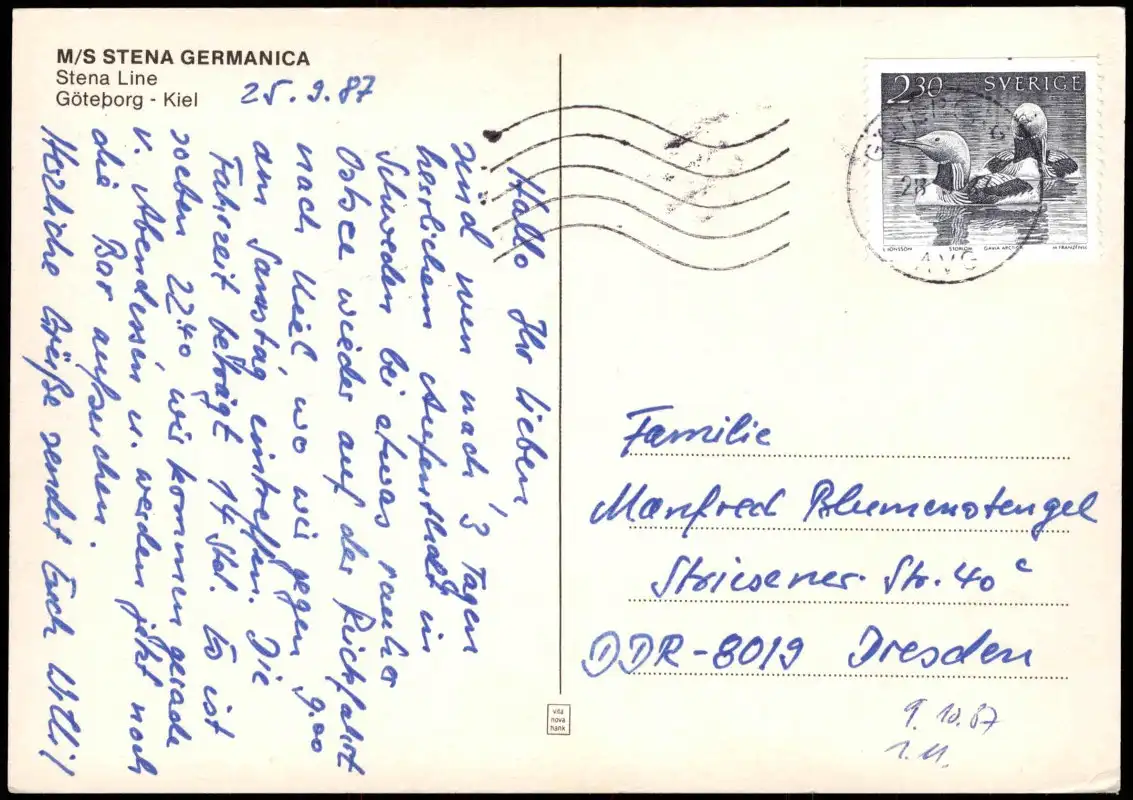 M/S STENA GERMANICA
Stena Line
Göteborg - Kiel
25.9.87
Hallo Ihr lieben,
sind nun nach 3 Tagen
herrlichem Aufenthalt in
Schweden bei etwas rauher
Ostsee wieder auf der Rückfahrt
nach Kiel, wo wir gegen 9.00
am Samstag eintreffen. Die
Fahrzeit beträgt 14 Std. Es ist
soeben 22.40 wir kommen gerade
v. Abendessen u. werden jetzt noch
die Bar aufsuchen.
Herzliche Grüße sendet Euch Willi
2.30 SVERIGE
L JONSSON STORLOM GAVIA ARCTICA M FRANZÉN SC
28
AVG
Familie
Manfred Blumenstengel
Striesener Str. 40 c
DDR-8019 Dresden
9.10.87
vita
nova
hank